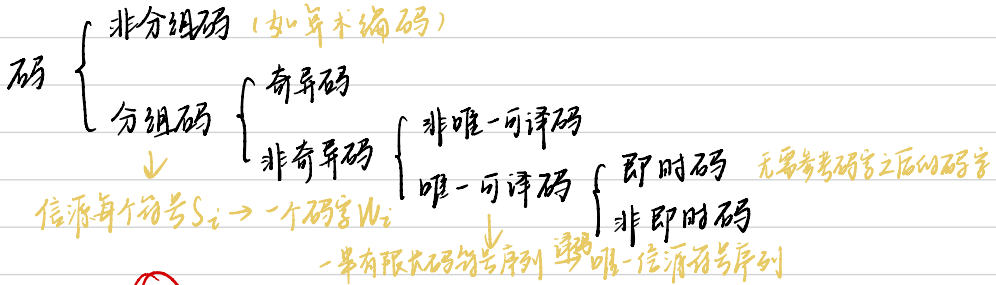 码
非分组码（如算术编码）
分组码
奇异码
非奇异码
非唯一可译码
唯一可译码
即时码 无需参考码字之后的码字
非即时码
信源每个符号Si→一个码字Wi
一串有限长码符号序列 译码 唯一信源符号序列